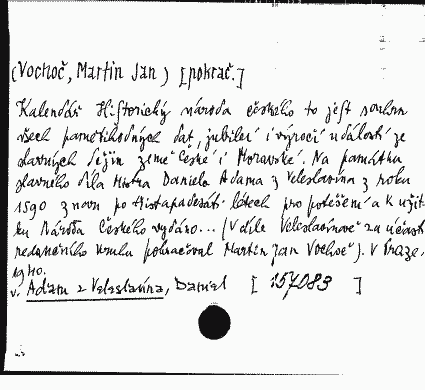 (Vochoč, Martin Jan) [pokrač.]
Kalendář Historický národa českého to jest souhrn
všech pamětihodných dat, jubileí i výročí událostí ze
slavných dějin země České i Moravské. Na památku
slavného díla Mistra Daniele Adama z Veleslavína z roku
1590 znovu po třistapadesáti létech pro potěšení a k užit-
ku Národa Českého vydáno... (V díle Veleslavínově za účasti
redakčního kruhu pokračoval Martin Jan Vochoč). V Praze,
1940.
v. Adam z Veleslavína, Daniel [ 157083 ]